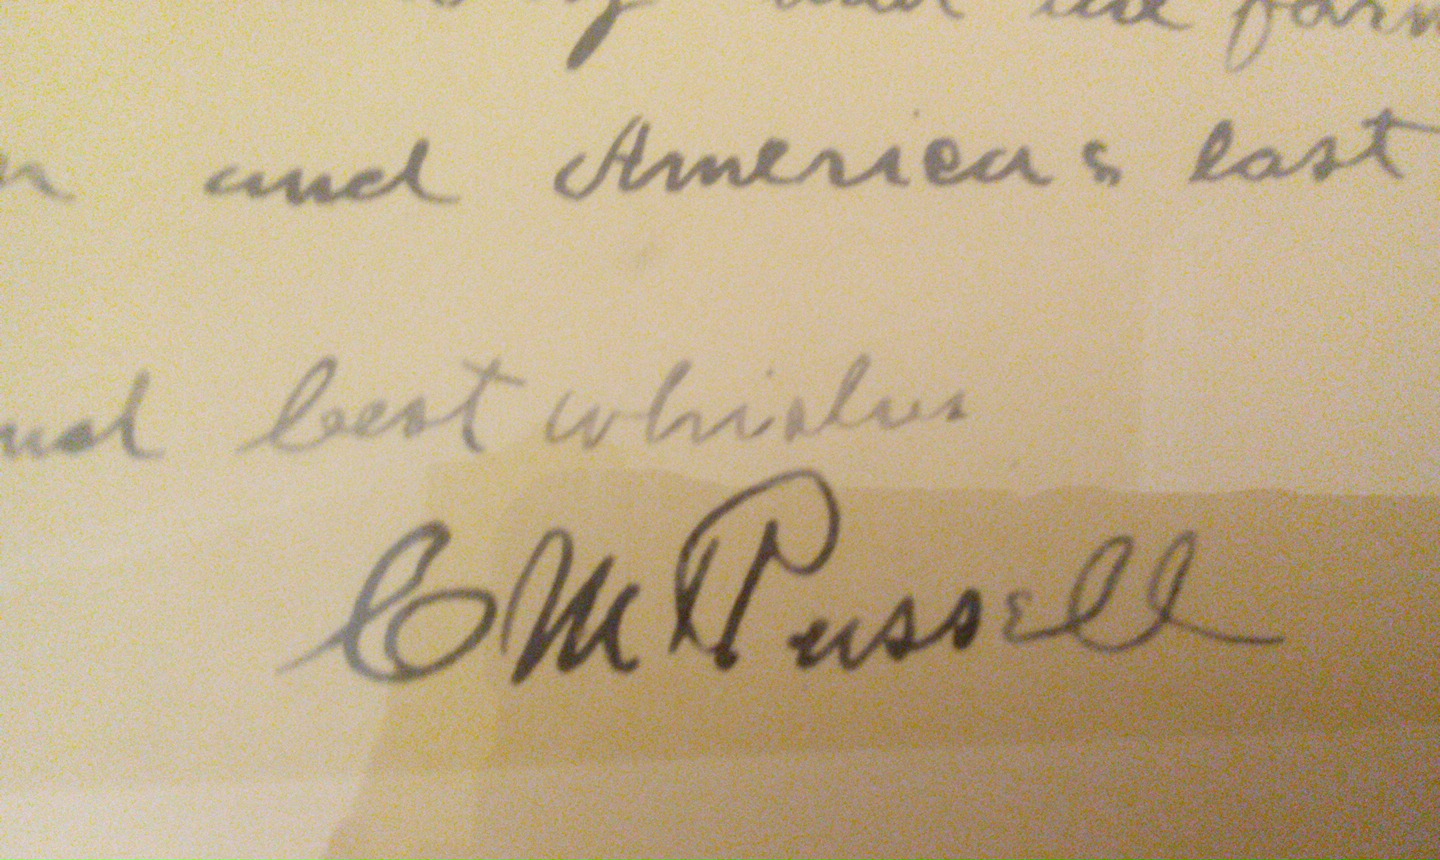 and the farm
and Americas last
and best whishes
C M Russell